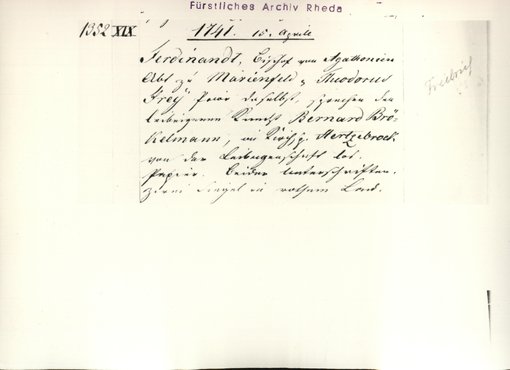 Fürstliches Archiv Rheda
1352 XIX
1741. 15. Aprile
Ferdinandt, Bischof von Agathonien
Abt zu Marienfeld u. Theodorus
Frey Prior daselbst, sprechen den
leibeigenen Knecht Bernard Brö-
kelmann, im Kirchsp. Hertzebrock
von der Leibeigenschaft los.
Papier. Beider Unterschriften.
zwei Siegel in rothem Lack.
Freibrief